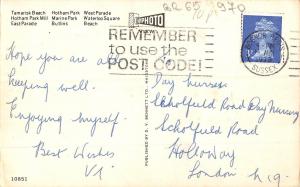 Tamarisk Beach Hotham Park West Parade
Hotham Park Mill Marine Park Waterloo Square
East Parade Butlins Beach
PHOTO
REMEMBER
to use the
POST CODE!
SUSSEX
Hope you are all
keeping well.
Enjoying myself
Best Wishes
Vi
PUBLISHED BY D. V. BENNETT LTD.
Day Nursery
Scholfield Road Day Nursery
Scholfield Road
Holloway
London N.19.
10851